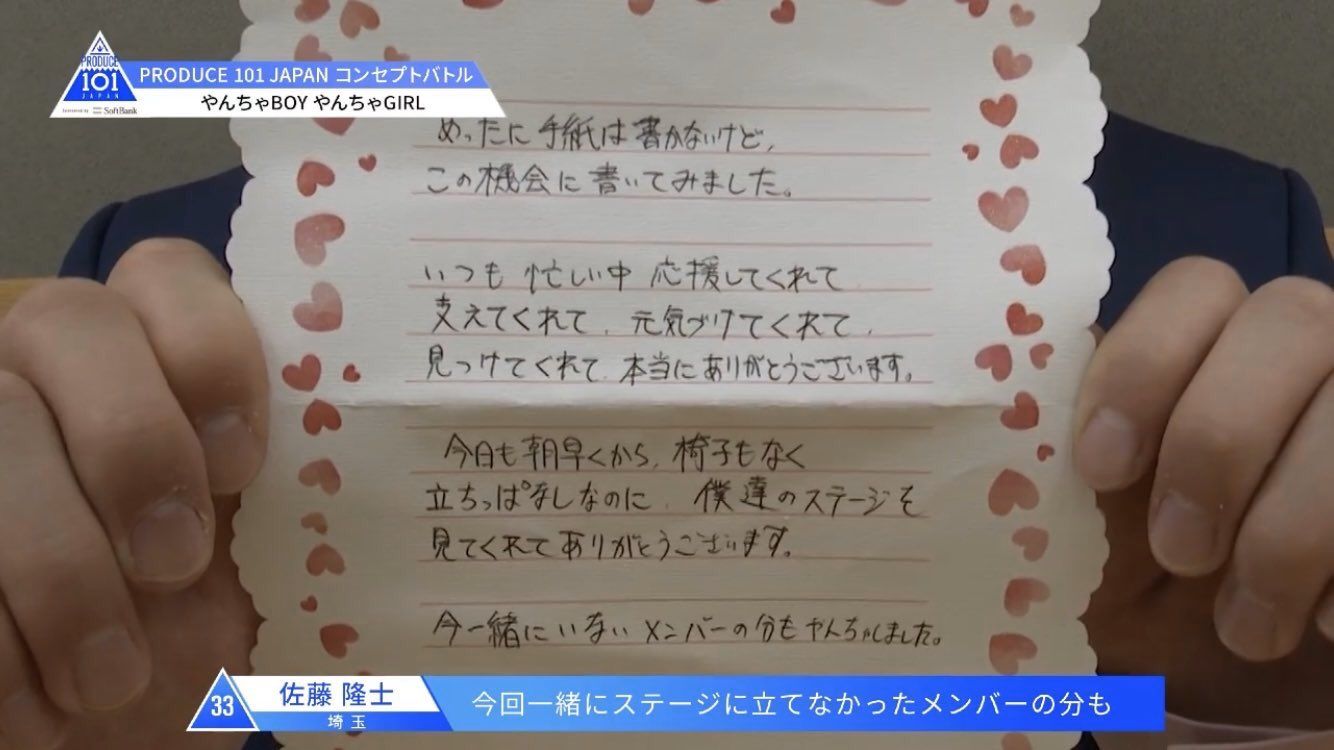 PRODUCE
101
JAPAN
SoftBank
PRODUCE 101 JAPAN コンセプトバトル
やんちゃBOY やんちゃGIRL
めったに手紙は書かないけど、
この機会に書いてみました。
いつも忙しい中 応援してくれて
支えてくれて、元気づけてくれて、
見つけてくれて、本当にありがとうございます。
今日も朝早くから、椅子もなく
立ちっぱなしなのに、僕達のステージを
見てくれてありがとうございます。
今一緒にいないメンバーの分もやんちゃしました。
33
佐藤 隆士
埼玉
今回一緒にステージに立てなかったメンバーの分も